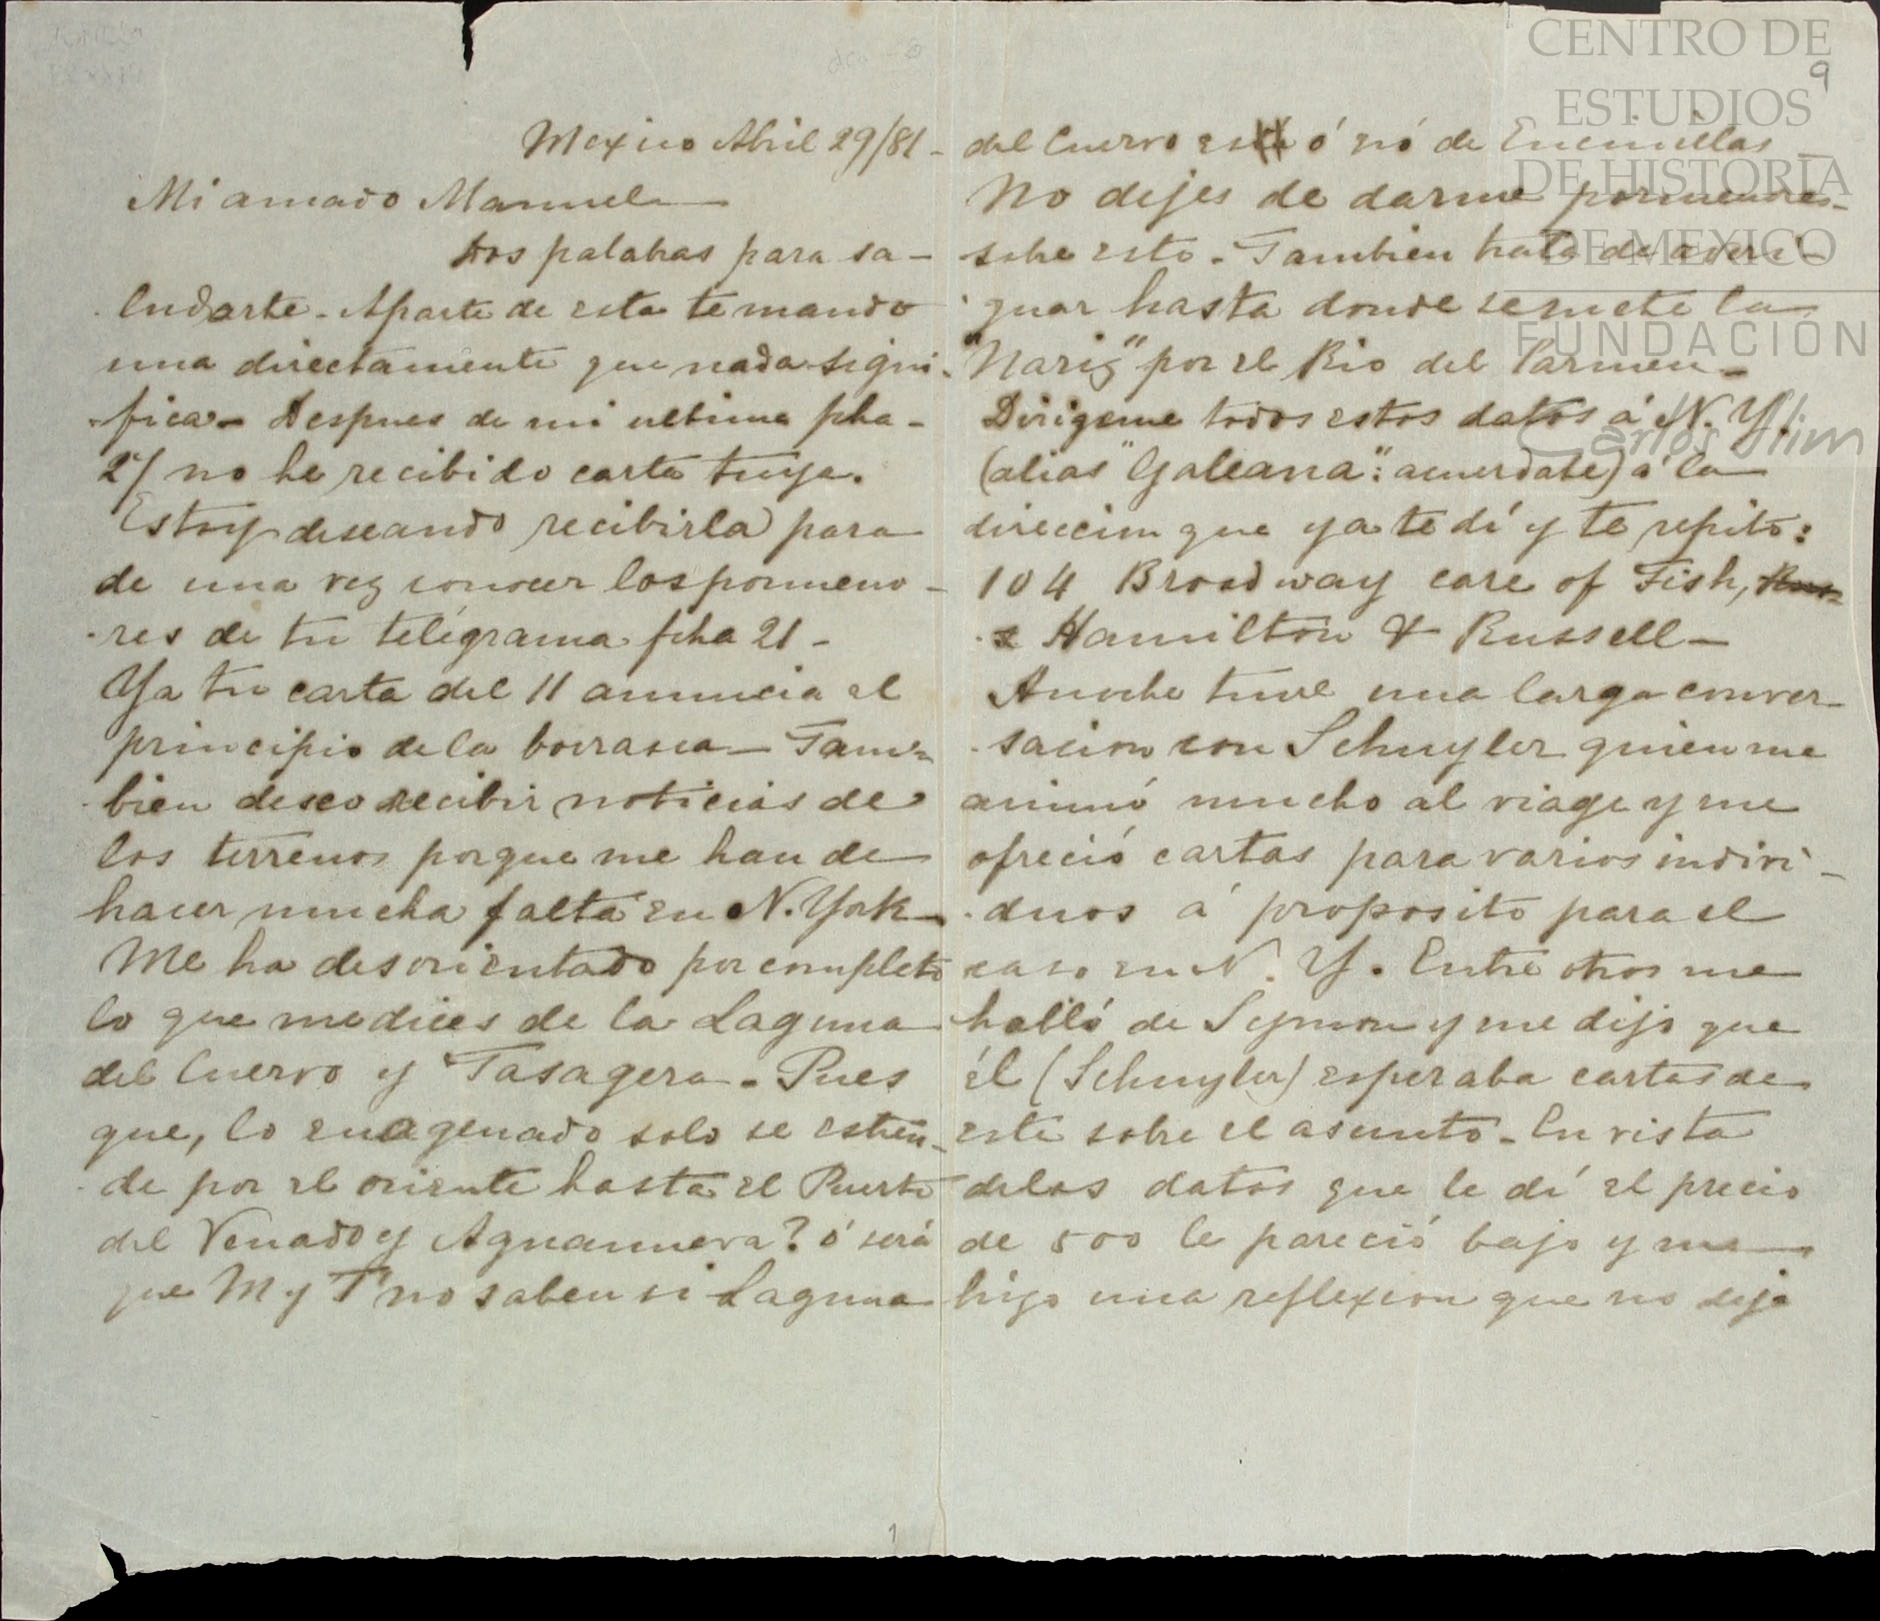 Mexico Abril 29/81-
Mi amado Manuel
Dos palabras para sa-
ludarte. Aparte de esta te mando
una directamente que nada signi-
fica. Despues de mi ultima fha-
27 no he recibido carta tuya.
Estoy deseando recibirla para
de una vez conocer los pormeno-
res de tu telégrama fcha 21-
Ya tu carta del 11 anuncia el
principio de la borrasca- Tam-
bien deseo recibir noticias de
los terrenos porque me han de
hacer mucha falta en N. York
Me ha desorientado por completo
lo que me dices de la Laguna
del Cuervo y Tasagera. Pues
que, lo enagenado solo se estien-
de por el oriente hasta el Puerto
del Venado y Aguanueva? ó será
que M y T no saben si Laguna
del Cuervo es ó nó de Encinillas
No dejes de darme pormenores
sobre esto. Tambien trata de averi-
guar hasta donde se mete la
"Nariz" por el Rio del Carmen-
Dirigeme todos estos datos á N. Y.
(alias "Galeana": acuerdate) á la
direccion que ya te dí y te repito:
104 Broadway care of Fish,
Hamilton & Russell-
Anoche tuve una larga conver-
sacion con Schuyler quien me
animó mucho al viage y me
ofreció cartas para varios indivi-
duos á proposito para el
caso en N. Y. Entre otros me
habló de Symon y me dijo que
él (Schuyler) esperaba cartas de
este sobre el asunto. En vista
de los datos que le dí el precio
de 500 le pareció bajo y me
hizo una reflexion que no deja
9
1
CENTRO DE
ESTUDIOS
DE HISTORIA
DE MEXICO
FUNDACIÓN
Carlos Slim